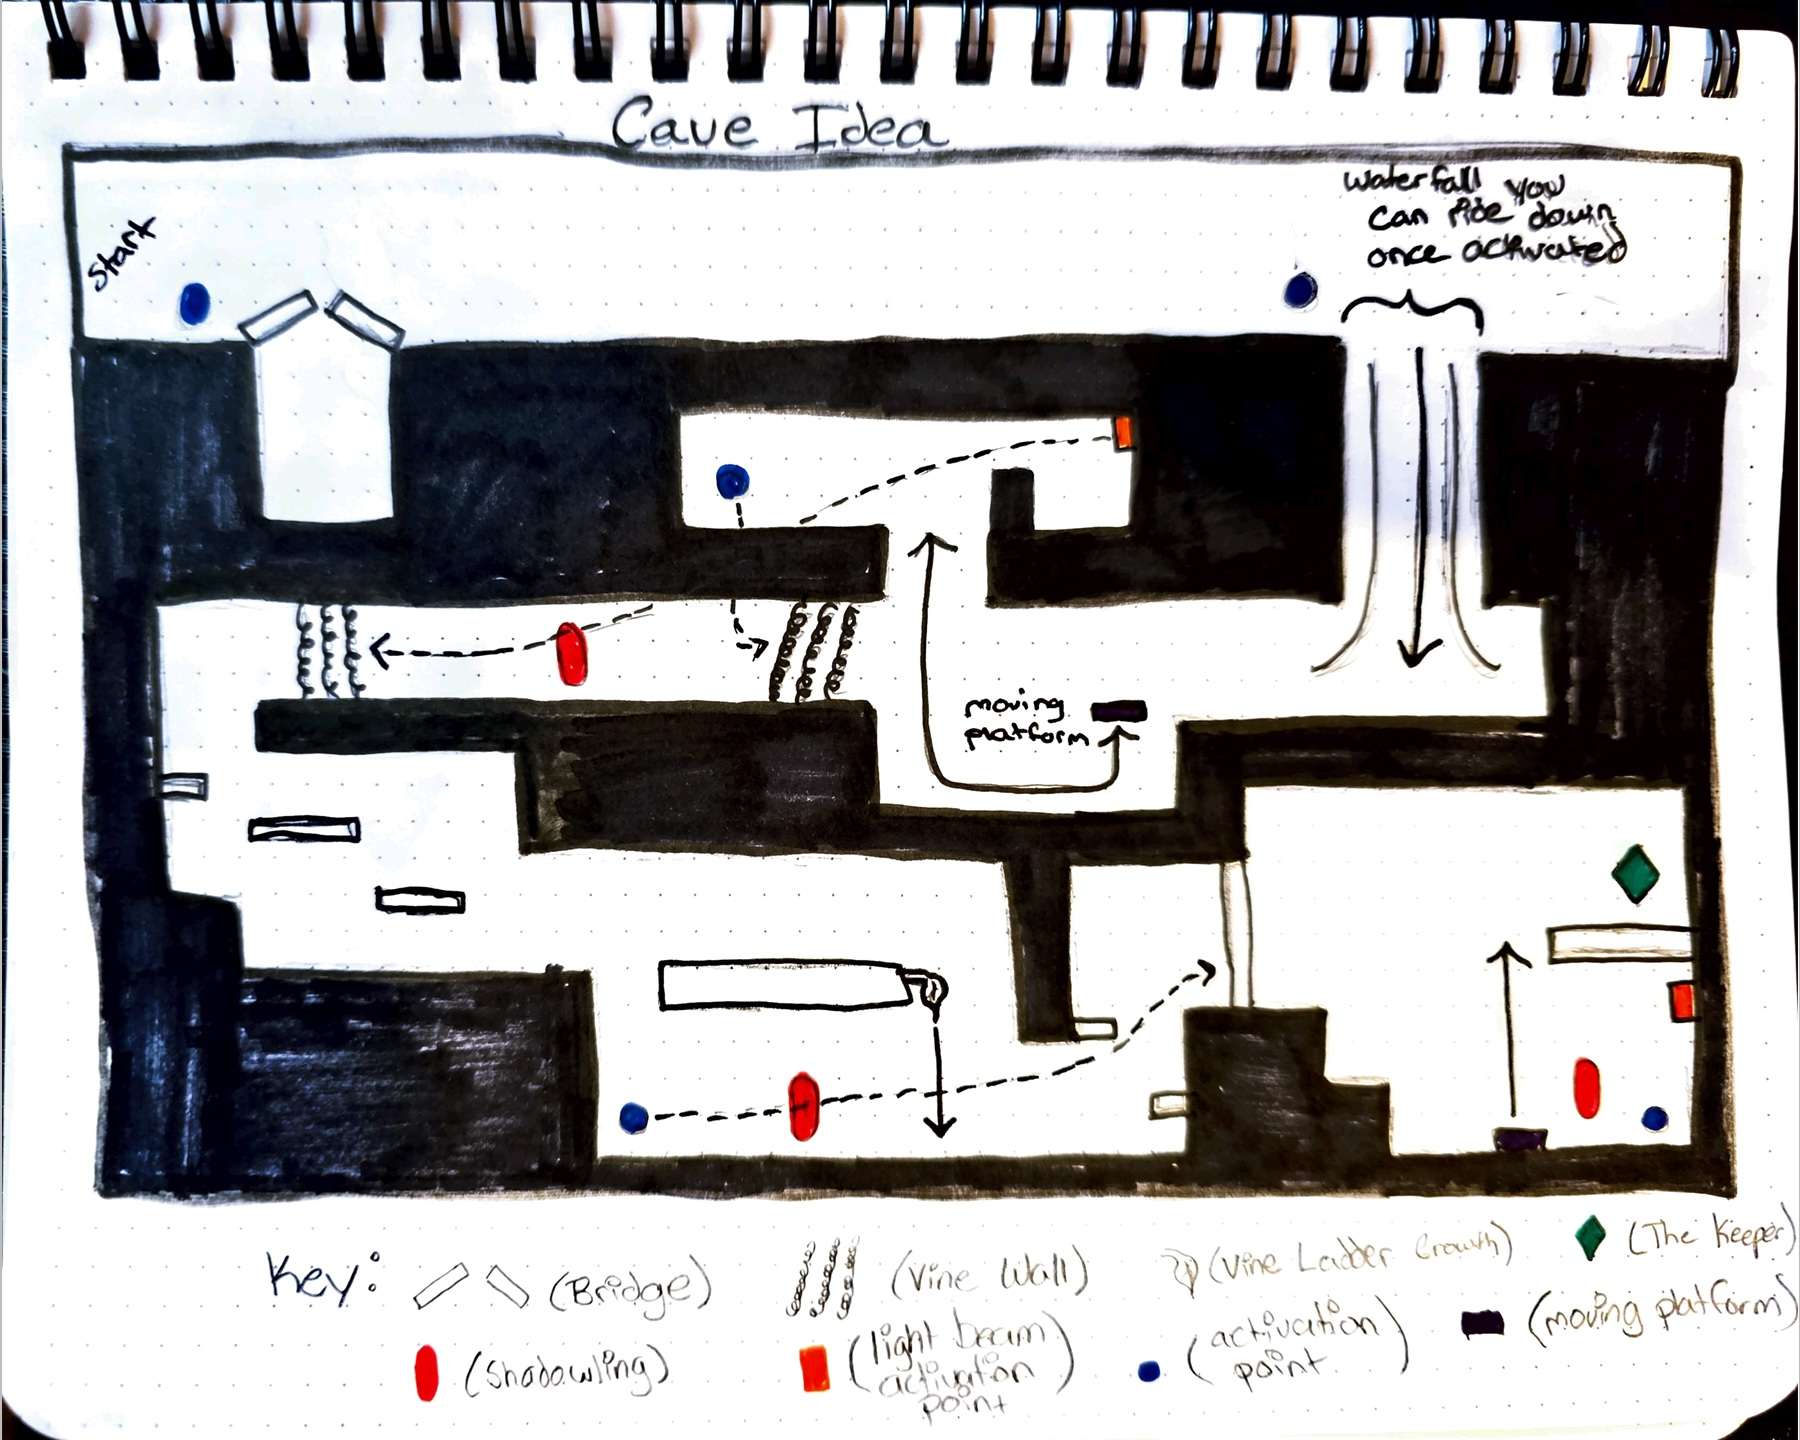 Cave Idea
Start
Waterfall you
can ride down
once activated
moving
platform
Key:
(Bridge)
(Vine Wall)
(Vine Ladder Growth)
(The Keeper)
(Shadowling)
(light beam
activation
point)
(activation
point)
(moving platform)